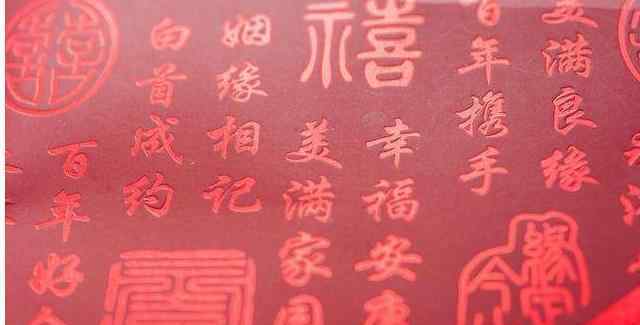 美满良缘
百年携手
禧
幸福安康
美满家
姻缘相记
白首成约
百年好